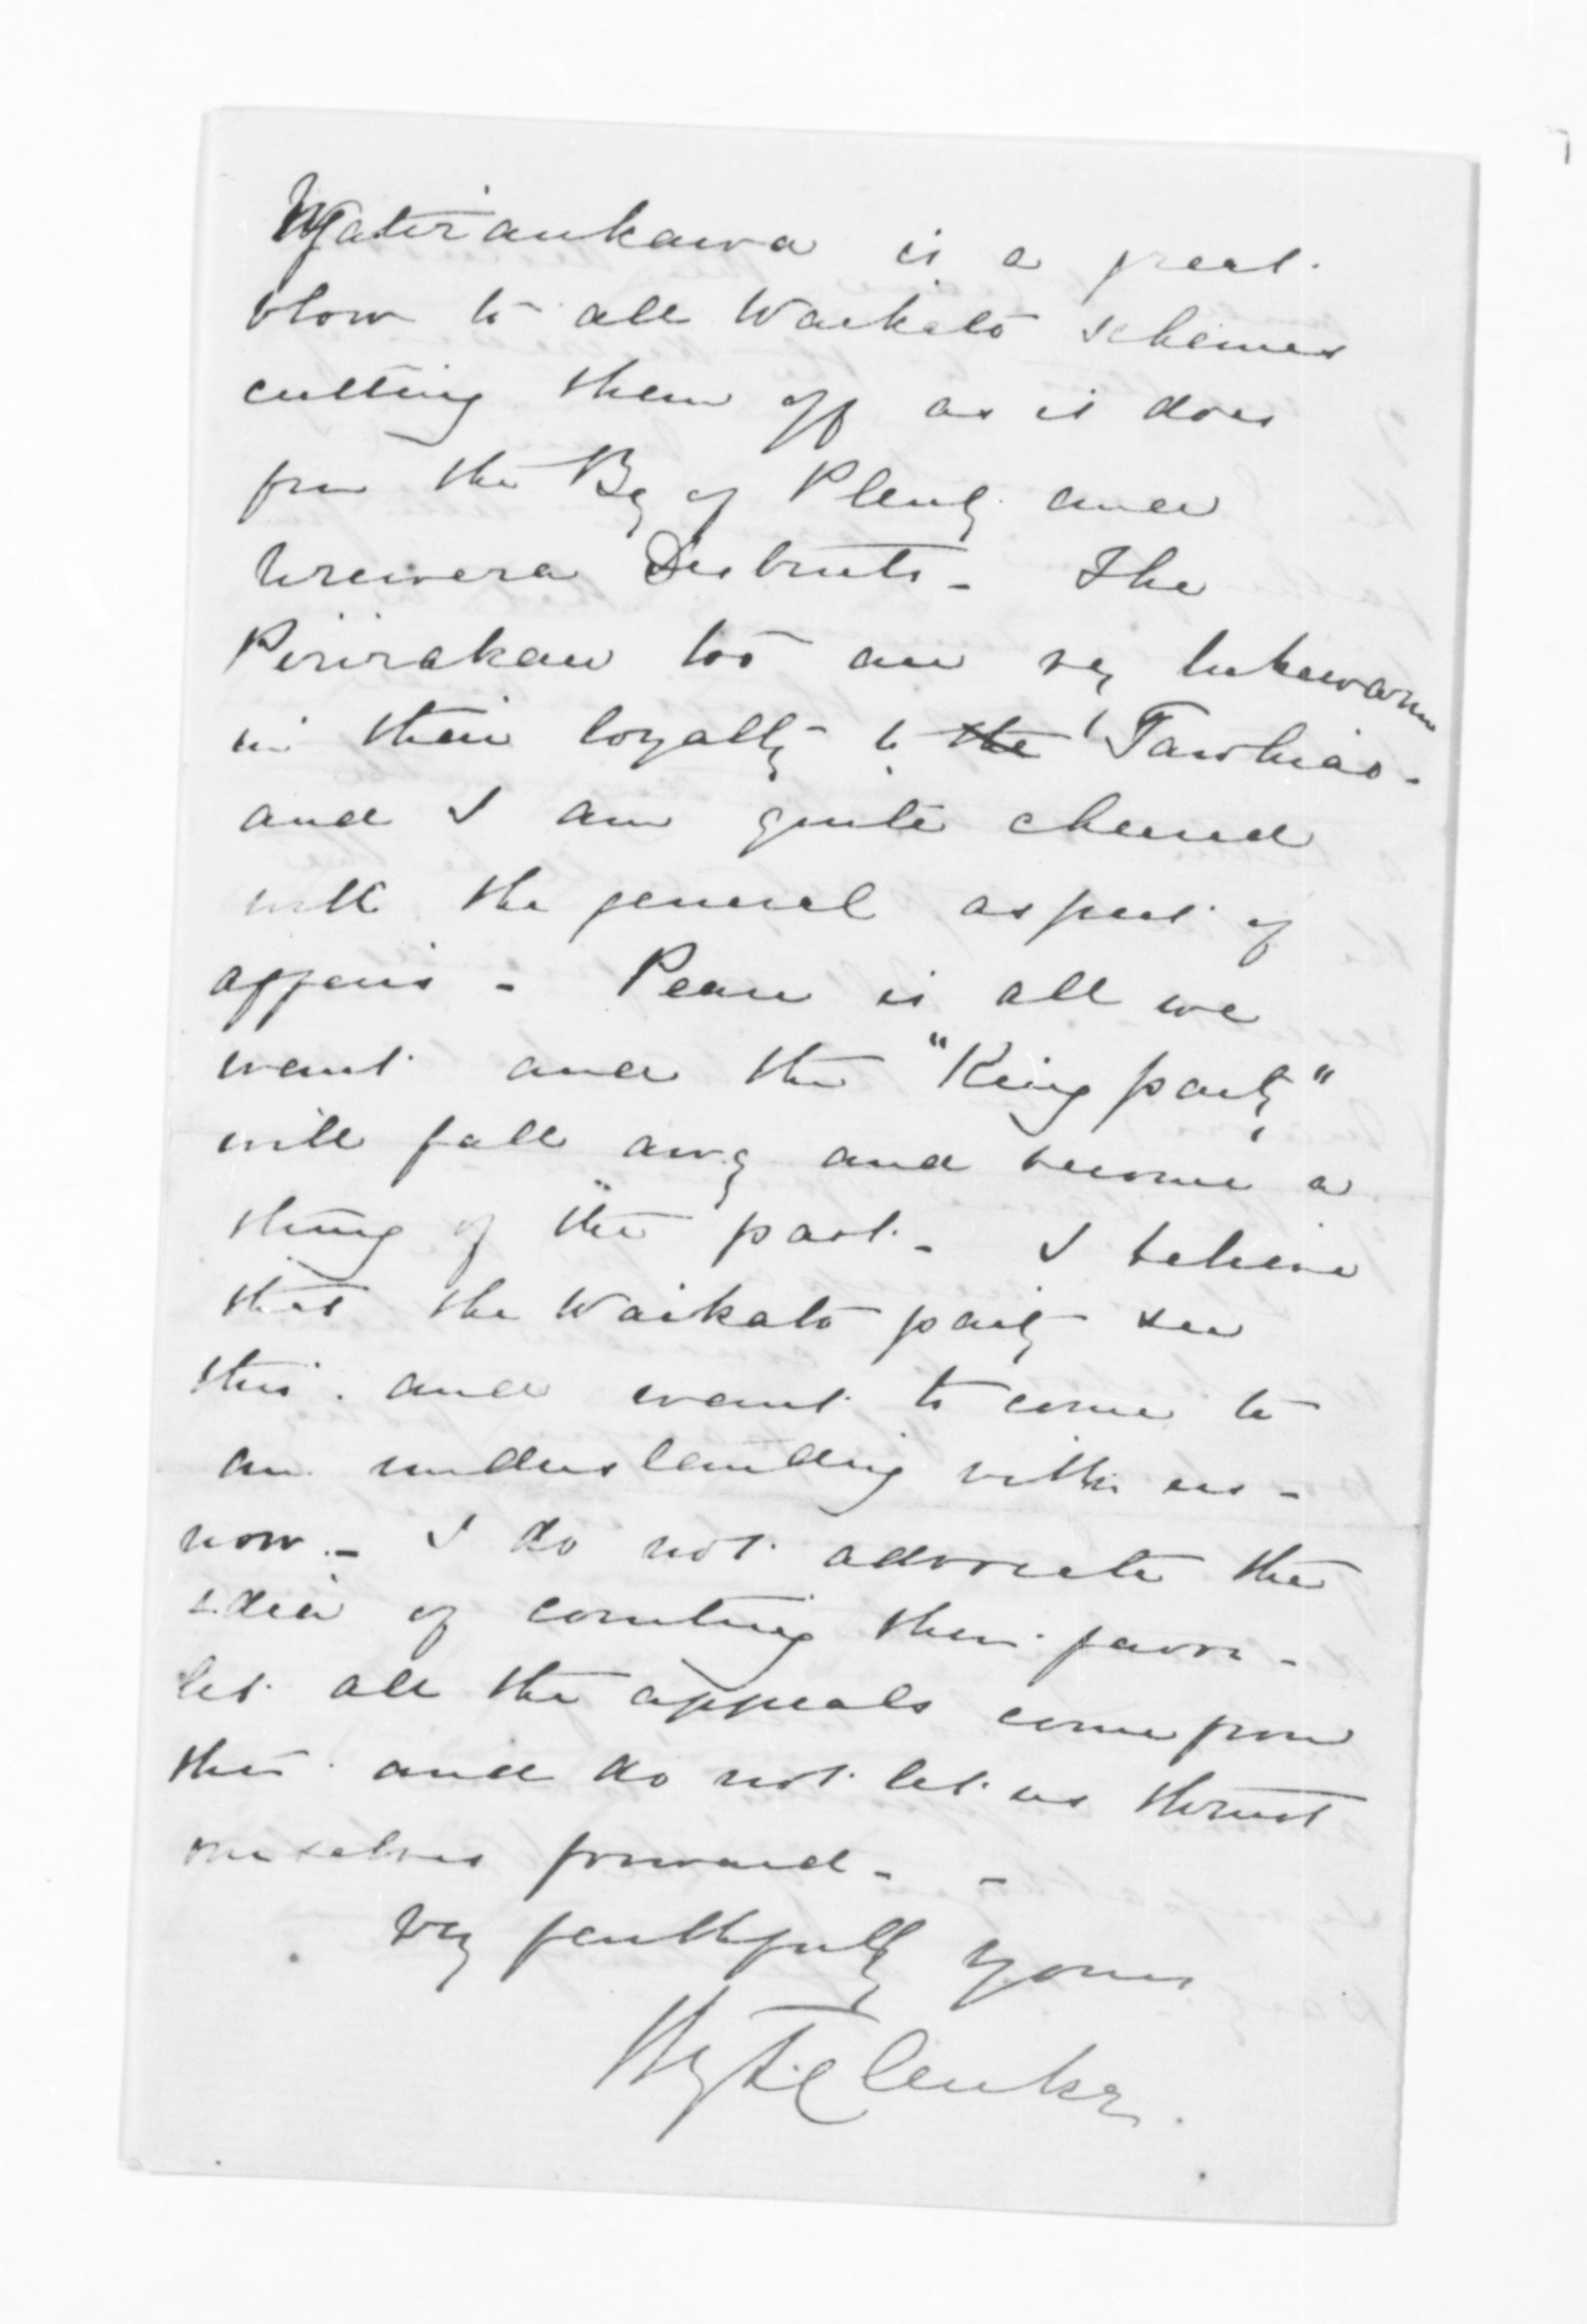 Ngatiraukawa is a great
blow to all Waikato schemes
cutting them off as it does
from the Bay of Plenty and
Urewera Districts - The
Piririrakau too are very lukewarm
in their loyalty to the Tawhiao -
and I am quite cheered
with the general aspect of
affairs - Peace is all we
want and the "King party"
will fall away and become a
thing of the past - I believe
that the Waikato party see
this and want to come to
an understanding with us -
now - I do not advocate the
idea of courting their favor -
let all the appeals come from
them and do not let us thrust
ourselves forward - -
Very faithfully yours
Hy T Clarke.